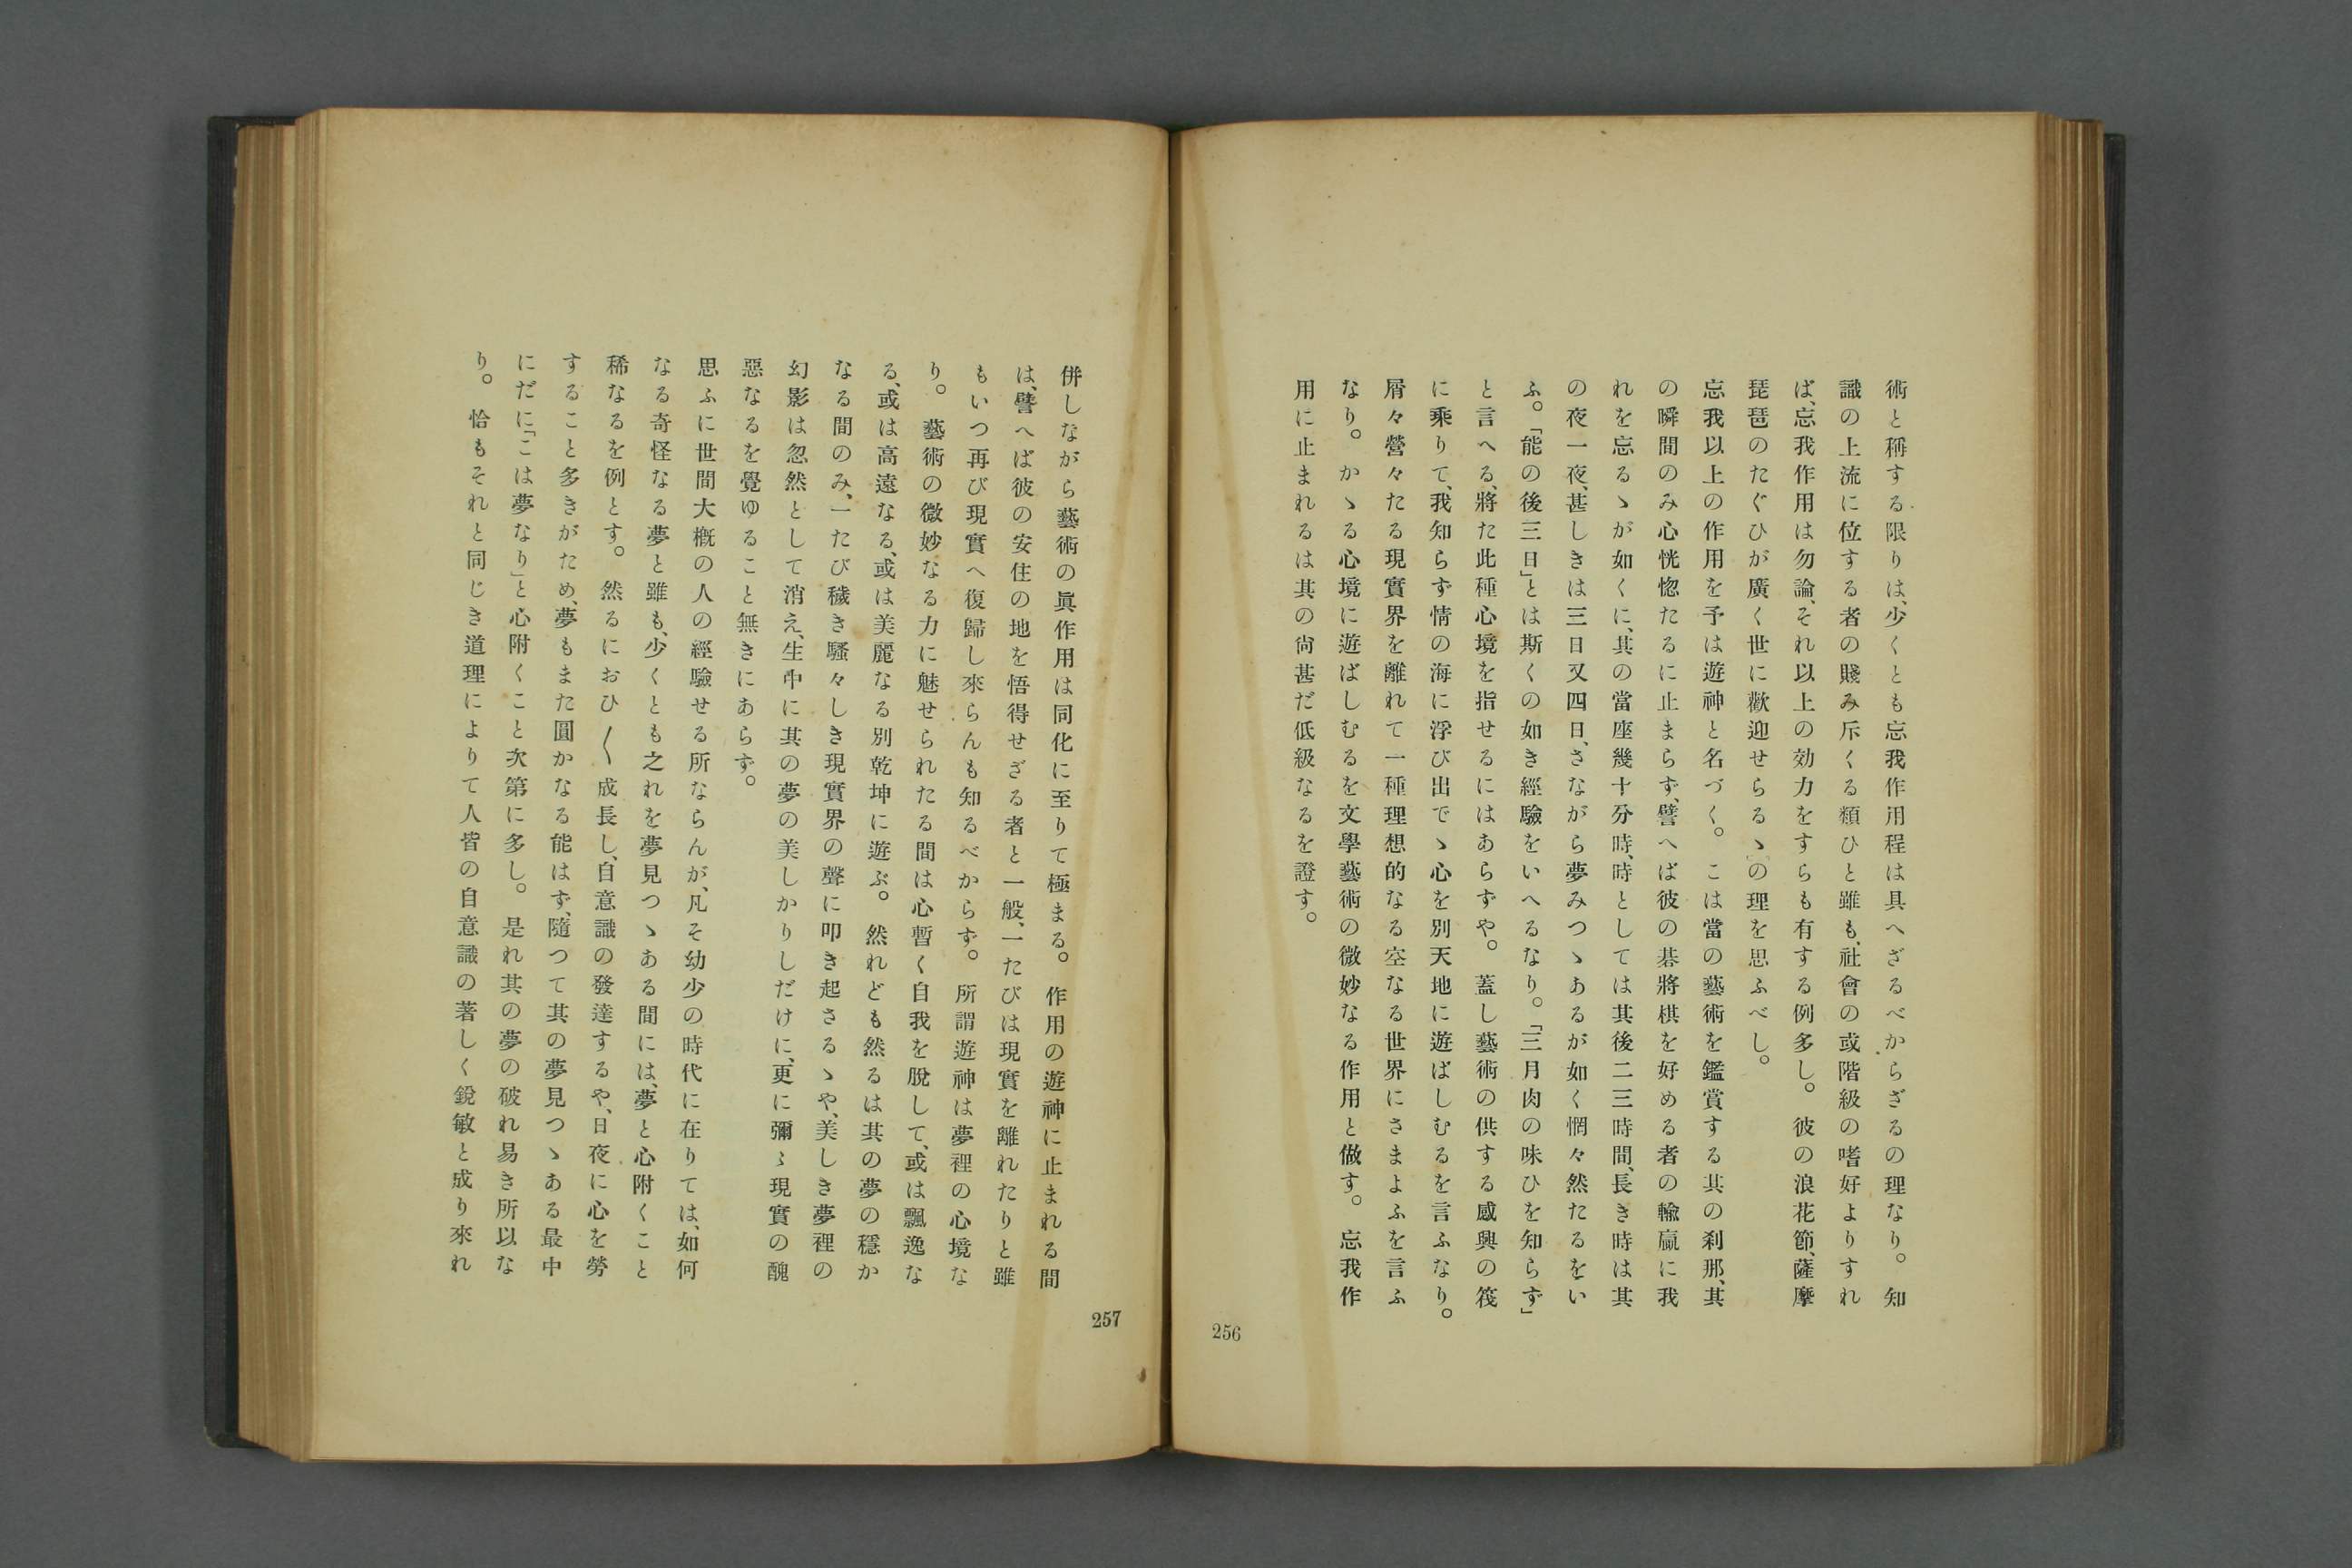 術と稱する限りは、少くとも忘我作用程は具へざるべからざるの理なり。知
識の上流に位する者の賤み斥くる類ひと雖も、社會の或階級の嗜好よりすれ
ば、忘我作用は勿論、それ以上の効力をすらも有する例多し。彼の浪花節、薩摩
琵琶のたぐひが廣く世に歡迎せらるゝの理を思ふべし。
忘我以上の作用を予は遊神と名づく。こは當の藝術を鑑賞する其の刹那、其
の瞬間のみ心恍惚たるに止まらず、譬へば彼の碁將棋を好める者の輸贏に我
れを忘るゝが如くに、其の當座幾十分時、時としては其後二三時間、長き時は其
の夜一夜、甚しきは三日又四日、さながら夢みつゝあるが如く惘々然たるをい
ふ。「能の後三日」とは斯くの如き經驗をいへるなり。「三月肉の味ひを知らず」
と言へる、將た此種心境を指せるにはあらずや。蓋し藝術の供する感興の筏
に乘りて、我知らず情の海に浮び出でゝ心を別天地に遊ばしむるを言ふなり。
屑々營々たる現實界を離れて一種理想的なる空なる世界にさまよふを言ふ
なり。かゝる心境に遊ばしむるを文學藝術の微妙なる作用と做す。忘我作
用に止まれるは其の尙甚だ低級なるを證す。
256
併しながら藝術の眞作用は同化に至りて極まる。作用の遊神に止まれる間
は、譬へば彼の安住の地を悟得せざる者と一般、一たびは現實を離れたりと雖
もいつ再び現實へ復歸し來らんも知るべからず。所謂遊神は夢裡の心境な
り。藝術の微妙なる力に魅せられたる間は心暫く自我を脫して、或は飄逸な
る、或は高遠なる、或は美麗なる別乾坤に遊ぶ。然れども然るは其の夢の穩か
なる間のみ、一たび穢き騷々しき現實界の聲に叩き起さるゝや、美しき夢裡の
幻影は忽然として消え、生中に其の夢の美しかりしだけに、更に彌〻現實の醜
惡なるを覺ゆること無きにあらず。
思ふに世間大槪の人の經驗せる所ならんが、凡そ幼少の時代に在りては、如何
なる奇怪なる夢と雖も、少くとも之れを夢見つゝある間には、夢と心附くこと
稀なるを例とす。然るにおひ〱成長し、自意識の發達するや、日夜に心を勞
すること多きがため、夢もまた圓かなる能はず、隨つて其の夢見つゝある最中
にだに「こは夢なり」と心附くこと次第に多し。是れ其の夢の破れ易き所以な
り。恰もそれと同じき道理によりて人皆の自意識の著しく銳敏と成り來れ
257